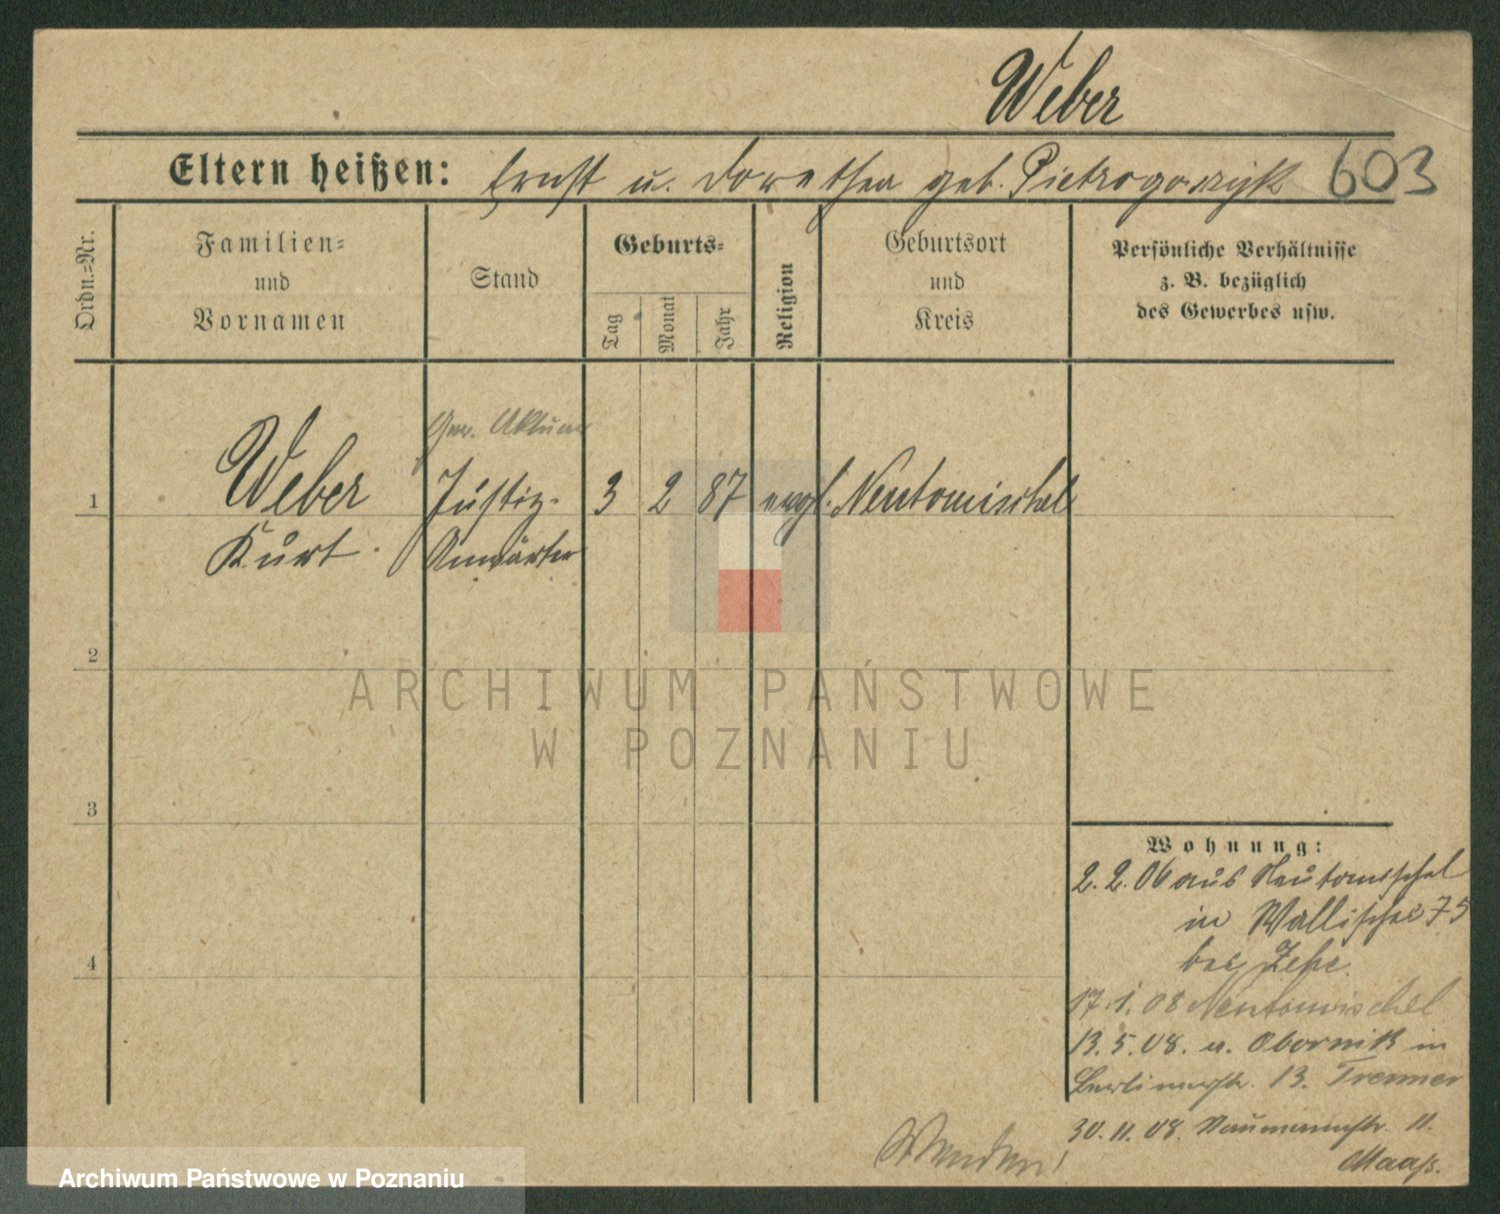 Weber
Eltern heißen: Ernst u. Dorothea geb. Pietrogoszyk 603
Ordn.=Nr.
Familien=
und
Vornamen
Stand
Geburts=
Tag
Monat
Jahr
Religion
Geburtsort
und
Kreis
Persönliche Verhältnisse
z. B. bezüglich
des Gewerbes usw.
Ger. Aktuar
1 Weber Justiz- 3 2 87 evgl. Neutomischel
Kurt Anwärter
2
3
4
Wohnung:
2.2.06 aus Neutomischel
in Wallischei 75
bei
17.1.08 Neutomischel
13.5.08. a. Obornik in
Berlinerstr. 13.
30.11.08. Naumannstr. 11.
Maaß.
Wenden!
ARCHIWUM PAŃSTWOWE
W POZNANIU
Archiwum Państwowe w Poznaniu